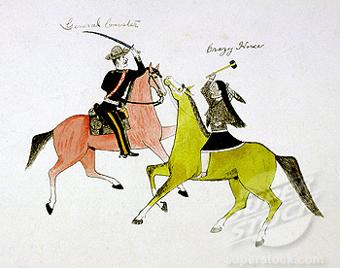 General Custer
Crazy Horse
SUPER
STOCK
superstock.com